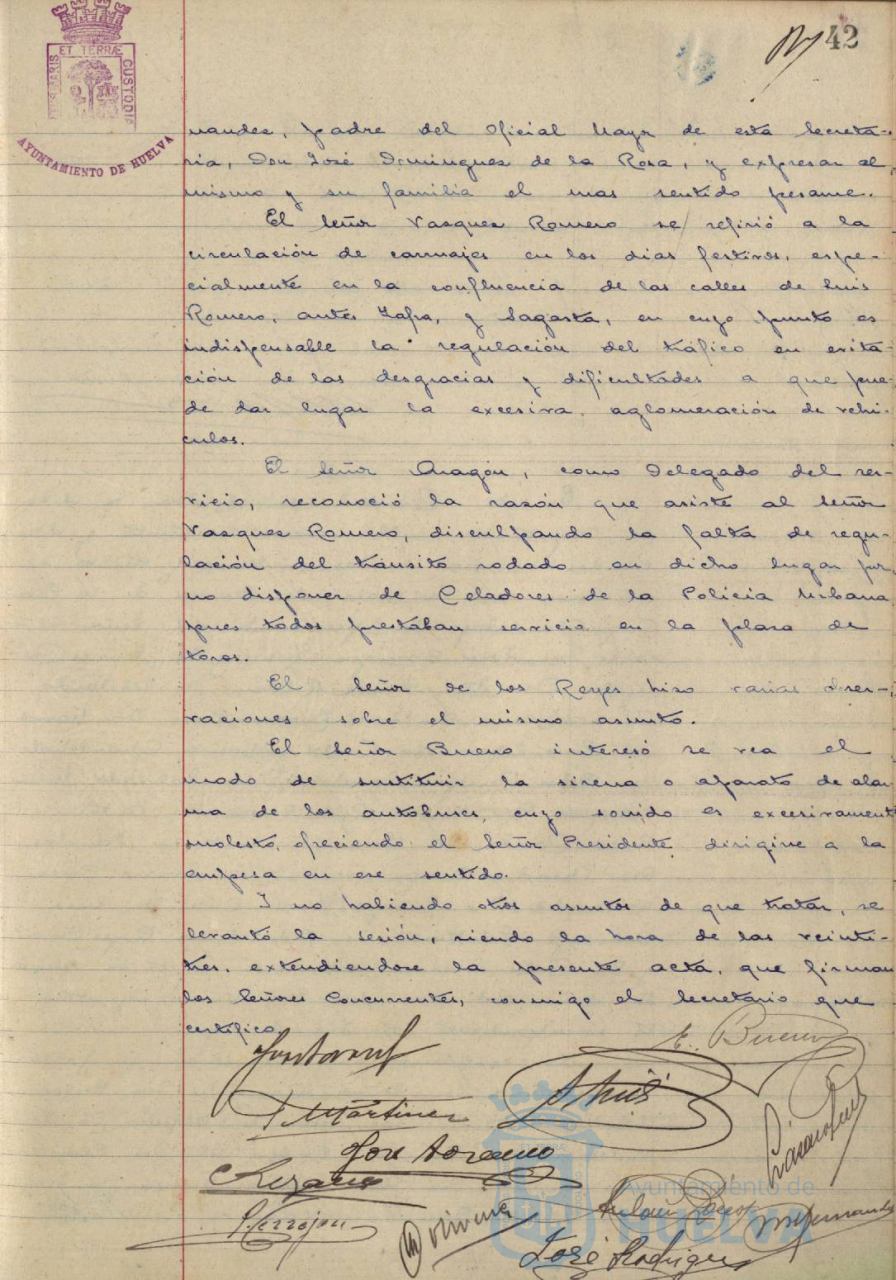 42
ET TERRÆ
MARIS
CUSTODIA
AYUNTAMIENTO DE HUELVA
nandez, padre del Oficial Mayor de esta Secreta-
ria, Don José Dominguez de la Rosa, y expresar al
mismo y su familia el mas sentido pesame.
El Señor Vazquez Romero se refirió a la
circulación de carruajes en los dias festivos, espe-
cialmente en la confluencia de las calles de Luis
Romero, antes Zafra, y Sagasta, en cuyo punto es
indispensable la regulación del tráfico en evita-
ción de las desgracias y dificultades a que pue-
de dar lugar la excesiva aglomeración de vehi-
culos.
El Señor Aragón, como Delegado del ser-
vicio, reconoció la razón que asiste al Señor
Vazquez Romero, disculpando la falta de regu-
lación del tránsito rodado en dicho lugar por
no disponer de Celadores de la Policia Urbana
pues todos prestaban servicio en la plaza de
toros.
El Señor de los Reyes hizo varias obser-
vaciones sobre el mismo asunto.
El Señor Bueno interesó se vea el
modo de sustituir la sirena o aparato de alar
ma de los autobuses, cuyo sonido es excesivament
molesto, ofreciendo el Señor Presidente dirigirse a la
empresa en ese sentido.
Y no habiendo otros asuntos de que tratar, se
levantó la sesión, siendo la hora de las veinti-
tres, extendiendose la presente acta, que firman
los Señores Concurrentes, conmigo el Secretario que
certifico.
E. Bueno
Martinez
José
José Rodriguez
Ayuntamiento de
HUELVA